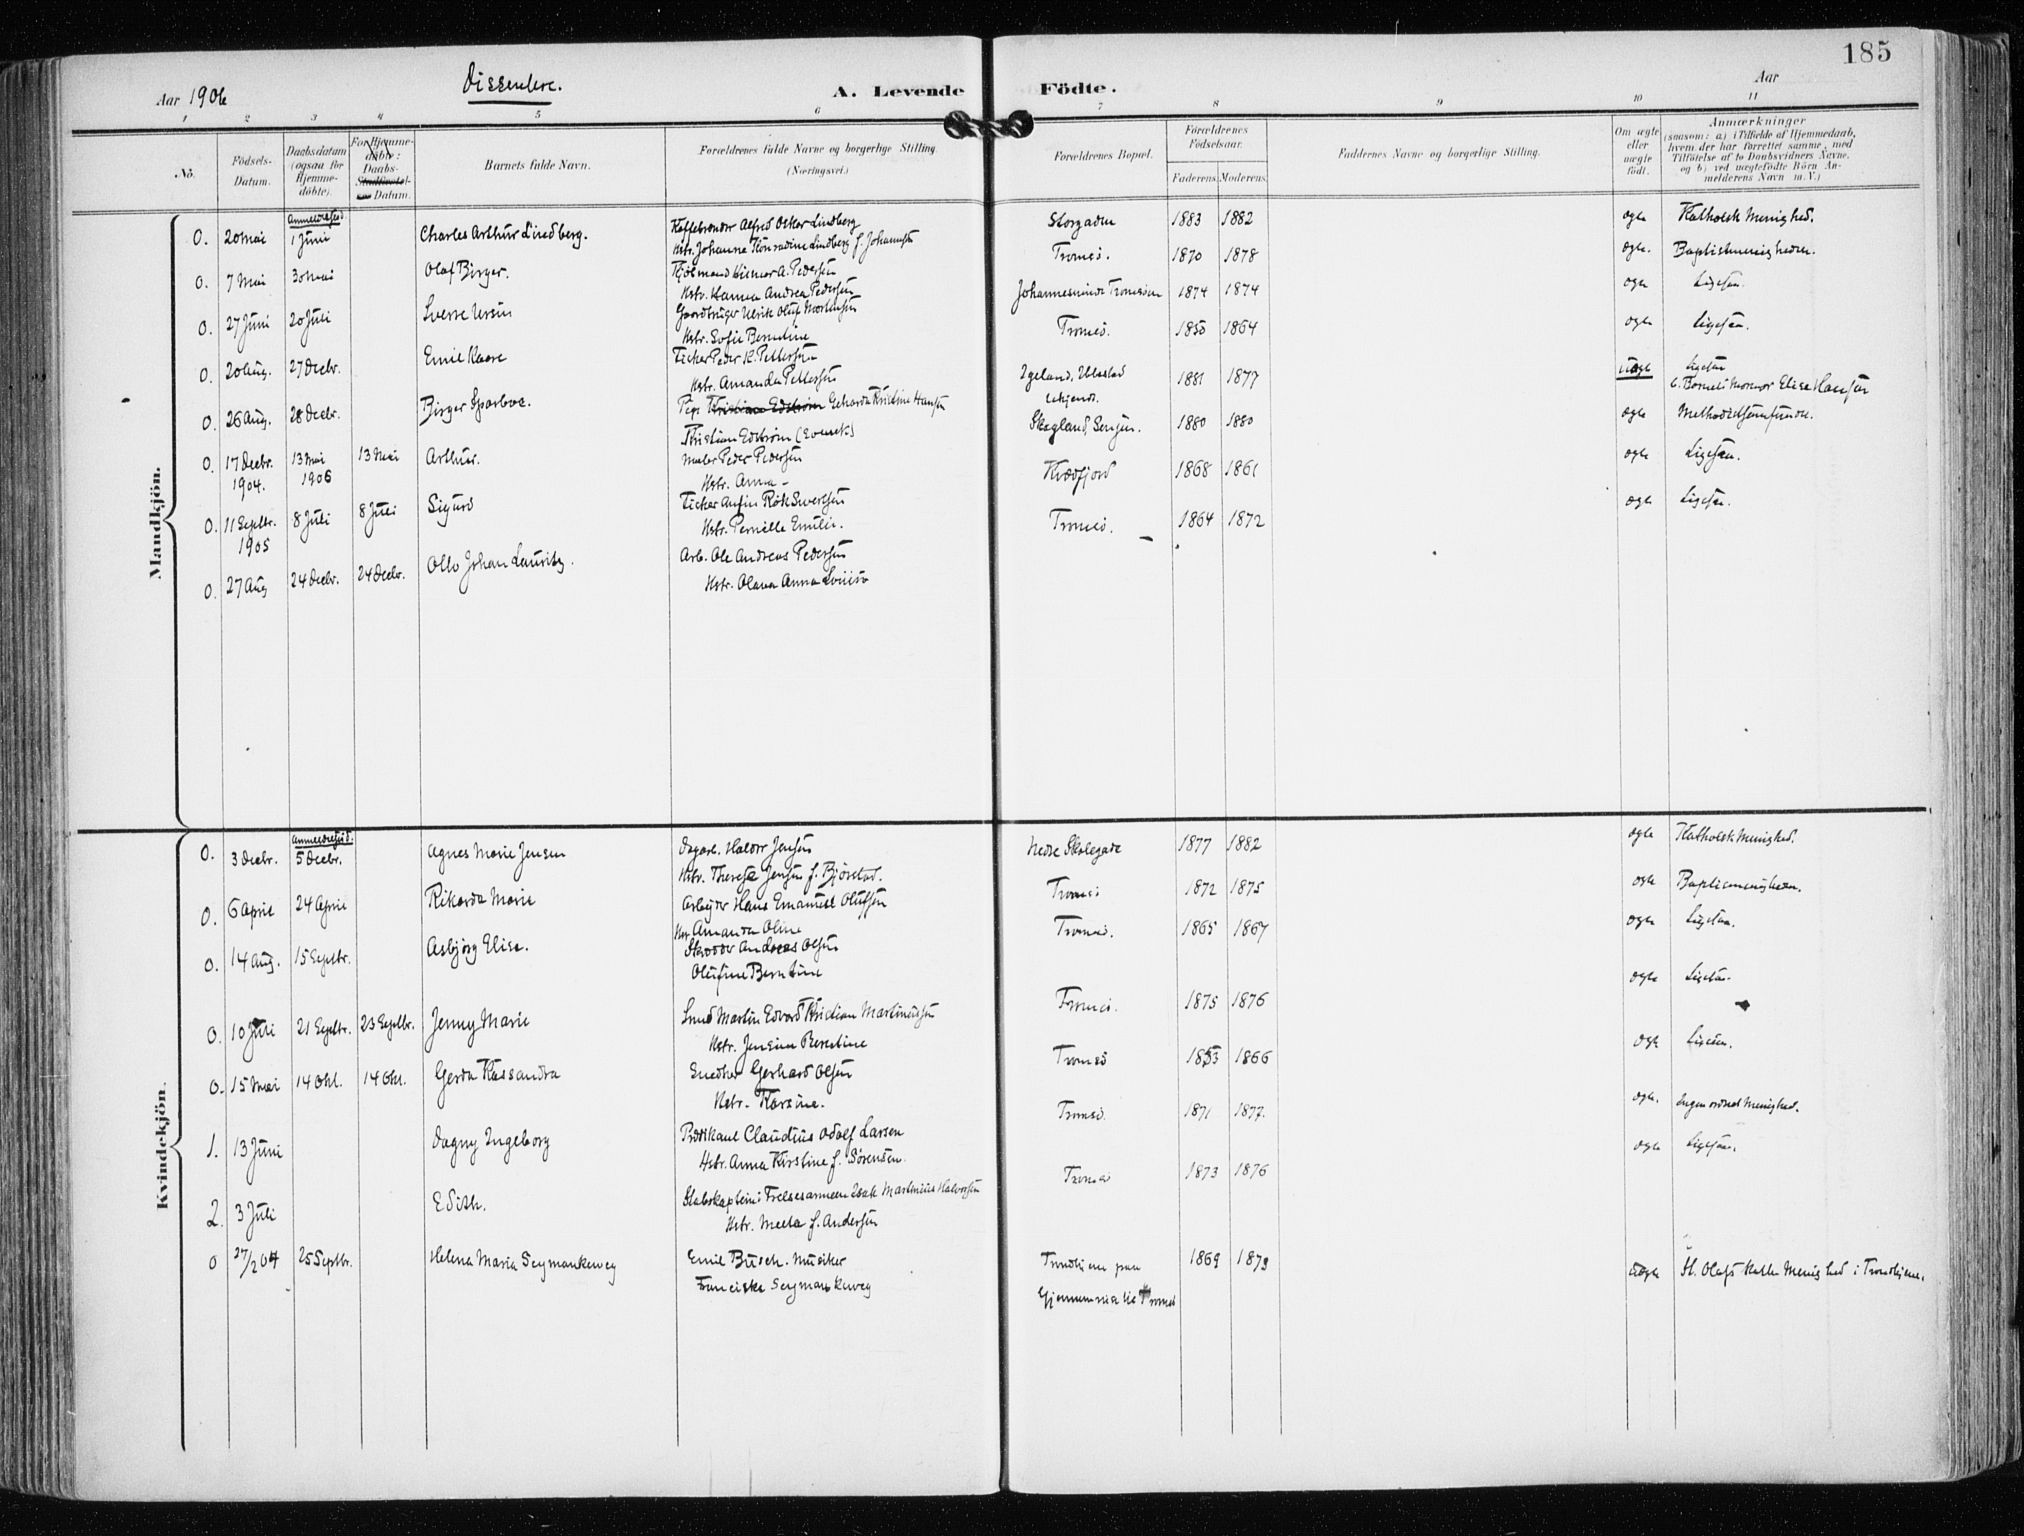 185
Aar 1906
Dissentere.
A. Levende Födte.
Aar
1 2 3 4 5 6 7 8 9 10 11
No. Födsels-Datum. Daabsdatum (ogsaa for Hjemme-döbte). For Hjemme-döbte: Daabs- Stadfæstel-sens Datum. Barnets fulde Navn. Forældrenes fulde Navne og borgerlige Stilling (Næringsvei.) Forældrenes Bopæl. Forældrenes Födselsaar. Faderens. Moderens. Faddernes Navne og borgerlige Stilling. Om ægte eller uægte födt. Anmærkninger (saasom: a.) i Tilfælde af Hjemmedaab, hvem der har forrettet samme, med Tilföielse af to Daabsvidners Navne, og b) ved uægtefödte Börn An-melderens Navn m. V.)
Mandkjön.
Anmeldelsesd.
0. 20 Mai 1 Juni Charles Arthur Lindberg. Kaffebrænder Alfred Oskar Lindberg Storgaden 1883 1882 ægte Katholsk Menighed.
Hstr. Johanne Konradine Lindberg f. Johannesen
0. 7 Mai 30 Mai Olaf Birger. Hjelmar A. Pedersen Tromsö. 1870 1878 ægte. Baptistmenigheden.
Hstr. Hanna Andrea Pedersen
0. 27 Juni 20 Juli Sverre Ursin Gaardbruger Ulrik Oluf Mortensen Johannesminde Tromsöen 1874 1874 ægte Ligesaa.
Hstr. Sofie Berntine
0. 20 Aug. 27 Decbr. Emil Kaare Peder K. Pettersen Tromsö. 1850 1864 ægte Ligesaa.
Hstr. Amanda Pettersen
0. 26 Aug. 28 Decbr. Birger Sparboe. Pige Kristiane Edström Gerharda Kristine Hansen 1881 1877 uægte Ligesaa
Kristian Edström Elise Hansen
0. 17 Decbr. 1904. 13 Mai 1906 13 Mai Arthur. Maler Peder Pedersen Skogland, Senjen. 1880 1880 ægte Methodistsamfundet.
Hstr. Anna –
0. 11 Septbr. 1905 8 Juli 8 Juli Sigurd Sivertsen Kvædfjord 1868 1861 ægte Ligesaa.
Hstr. Pernille Emilie.
0. 27 Aug 24 Decbr. 24 Decbr. Otto Johan Lauritz. Arb. Ole Andreas Pedersen Tromsö. 1864 1872 ægte Ligesaa.
Hstr. Olava Anna Lovise
Kvindekjön.
Anmeldelsesd.
0. 3 Decbr. 5 Decbr. Agnes Marie Jensen Dagarb. Haldor Jensen Nedre Skolegade 1877 1882 ægte Katholsk Menighed.
Hstr. Therese Jensen f. Bjørstad.
0. 6 April 24 April Rikarda Marie Arbeider Hans Emanuel Olufsen Tromsö 1872 1875 ægte Baptismenigheden.
Hstr Amanda Oline
0. 14 Aug. 15 Septbr. Asbjörg Elise. Skrædder Andreas Olsen Tromsö. 1865 1867 ægte Ligesaa.
Olufine Berntine
0. 10 Juli 21 Septbr. 23 Septbr. Jenny Marie Smed Martin Edvard Kristian Martinussen Tromsö. 1875 1876 ægte Ligesaa.
Hstr. Jensine Berntine
0. 15 Mai 14 Okt. 14 Okt. Gerda Kassandra Snedker Gerhard Olsen Tromsö 1853 1866 ægte Ligesaa.
Hstr. Karsine.
1. 13 Juni Dagny Ingeborg Prædikant Claudius Adolf Larsen Tromsö 1871 1877. ægte. Ingen ordnet Menighed.
Hstr. Anna Kirstine f. Sørensen.
2. 3 Juli Edith. Stabskaptein i Frelsesarmeen Isak Martinius Halvorsen Tromsö 1873 1876 ægte Ligesaa.
Hstr. Meeta f. Andersen
0 27/2 04 25 Septbr. Helena Maria Seymankewey Emil Busch. Musiker Trondhjem paa 1869 1879 uægte St. Olafs Kath. Menighed i Trondhjem.
Franciska Seymankewey Gjennemreise til Tromsö